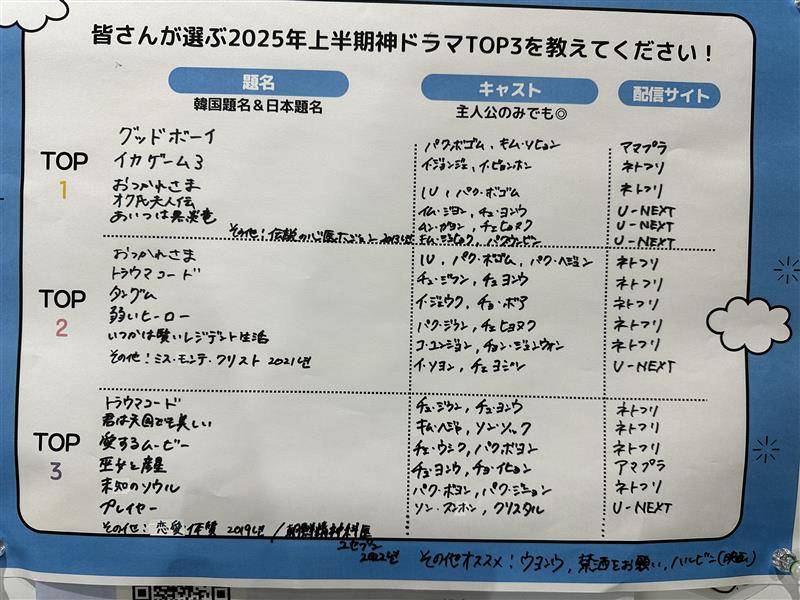 皆さんが選ぶ2025年上半期神ドラマTOP3を教えてください！
題名 キャスト 配信サイト
韓国題名＆日本題名 主人公のみでも◎
TOP 1
グッドボーイ パク・ボゴム、キム・ソヒョン アマプラ
イカゲーム3 イ・ジョンジェ、イ・ビョンホン ネトフリ
おつかれさま IU、パク・ボゴム ネトフリ
オク氏夫人伝 イム・ジヨン、チュ・ヨンウ U-NEXT
あいつは黒炎竜 ムン・ガヨン、チェ・ヒョヌク U-NEXT
その他：伝説の心医ホジュン 2013年 キム・ジュヒョク、パクウンビン U-NEXT
TOP 2
おつかれさま IU、パク・ボゴム、パク・ヘジュン ネトフリ
トラウマコード チュ・ジフン、チュ ヨンウ ネトフリ
タングム イ・ジェウク、チョ・ボア ネトフリ
弱いヒーロー パク・ジフン、チェ ヒョヌク ネトフリ
いつかは賢いレジデント生活 コ・ユンジョン、チョン・ジュンウォン ネトフリ
その他：ミス・モンテ・クリスト 2021年 イ・ソヨン、チェ ヨジン U-NEXT
TOP 3
トラウマコード チュ・ジフン、チュ・ヨンウ ネトフリ
君は天国でも美しい キム・ヘジャ、ソン・ソック ネトフリ
愛するムービー チェ・ウシク、パク ボヨン ネトフリ
巫女と彦星 チュ・ヨンウ、チョ・イヒョン アマプラ
未知のソウル パク・ボヨン、パク・ジニョン ネトフリ
プレイヤー ソン・スンホン、クリスタル U-NEXT
その他：恋愛体質 2019年 / 朝鮮精神科医
ユセプン
2022年
その他オススメ！ウヨンウ、禁酒をお願い、ハルビン(映画)